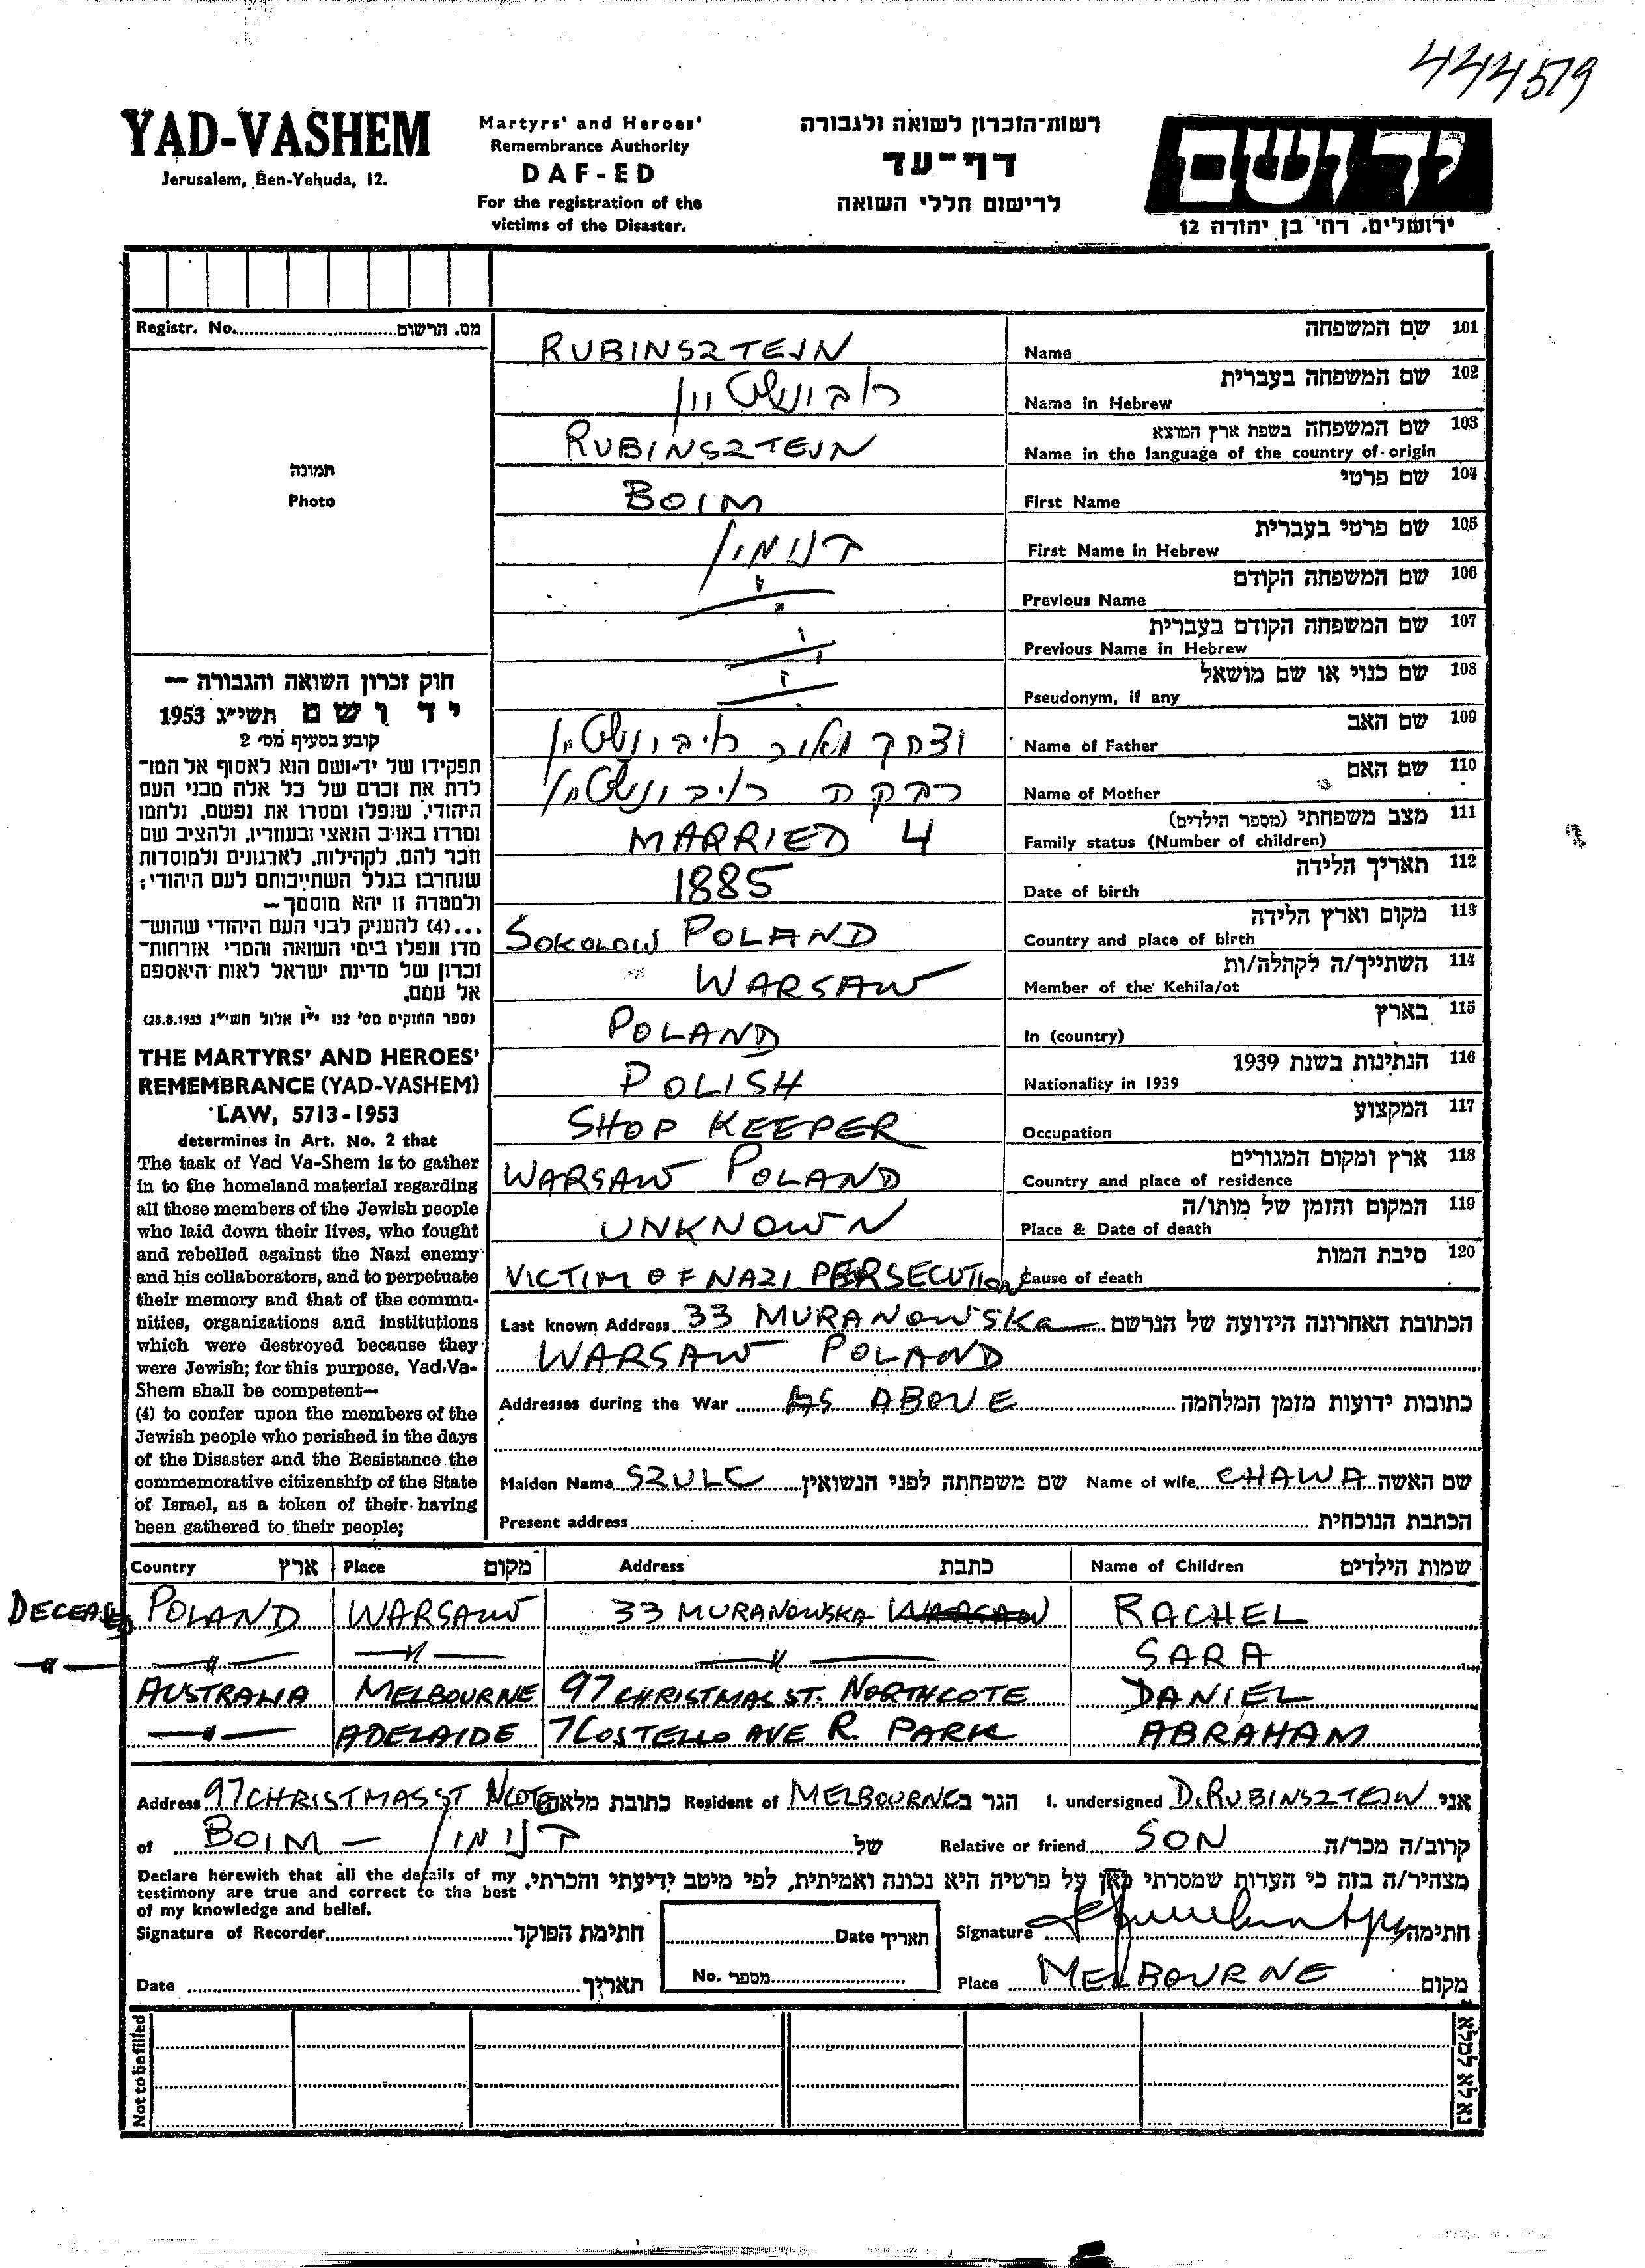 444579
YAD-VASHEM
Jerusalem, Ben-Yehuda, 12.
Martyrs' and Heroes'
Remembrance Authority
DAF-ED
For the registration of the
victims of the Disaster.
רשות-הזכרון לשואה ולגבורה
דף-עד
לרישום חללי השואה
יד ושם
ירושלים. רח' בן יהודה 12
Registr. No. מס. הרשום
תמונה
Photo
חוק זכרון השואה והגבורה —
יד ושם תשי״ג 1953
קובע בסעיף מס' 2
תפקידו של יד-ושם הוא לאסוף אל המו-
לדת את זכרם של כל אלה מבני העם
היהודי, שנפלו ומסרו את נפשם, נלחמו
ומרדו באויב הנאצי ובעוזריו, ולהציב שם
וזכר להם, לקהילות, לארגונים ולמוסדות
שנחרבו בגלל השתייכותם לעם היהודי:
ולמטרה זו יהא מוסמך—
...(4) להעניק לבני העם היהודי שהוש-
מדו ונפלו בימי השואה והמרי אזרחות-
זכרון של מדינת ישראל לאות היאספם
אל עמם.
(ספר החוקים מס' 132 י״ז אלול תשי״ג 28.8.1953)
THE MARTYRS' AND HEROES'
REMEMBRANCE (YAD-VASHEM)
LAW, 5713-1953
determines in Art. No. 2 that
The task of Yad Va-Shem is to gather
in to the homeland material regarding
all those members of the Jewish people
who laid down their lives, who fought
and rebelled against the Nazi enemy
and his collaborators, and to perpetuate
their memory and that of the commu-
nities, organizations and institutions
which were destroyed because they
were Jewish; for this purpose, Yad-Va-
Shem shall be competent—
(4) to confer upon the members of the
Jewish people who perished in the days
of the Disaster and the Resistance the
commemorative citizenship of the State
of Israel, as a token of their having
been gathered to their people;
RUBINSZTEJN Name שם המשפחה 101
רובינשטיין Name in Hebrew שם המשפחה בעברית 102
RUBINSZTEJN Name in the language of the country of origin שם המשפחה בשפת ארץ המוצא 103
BOIM First Name שם פרטי 104
בנימין First Name in Hebrew שם פרטי בעברית 105
Previous Name שם המשפחה הקודם 106
Previous Name in Hebrew שם המשפחה הקודם בעברית 107
Pseudonym, if any שם כנוי או שם מושאל 108
יצחק מאיר רובינשטיין Name of Father שם האב 109
רבקה רובינשטיין Name of Mother שם האם 110
MARRIED 4 Family status (Number of children) מצב משפחתי (מספר הילדים) 111
1885 Date of birth תאריך הלידה 112
SOKOLOW POLAND Country and place of birth מקום וארץ הלידה 113
WARSAW Member of the Kehila/ot השתייך/ה לקהלה/ות 114
POLAND In (country) בארץ 115
POLISH Nationality in 1939 הנתינות בשנת 1939 116
SHOP KEEPER Occupation המקצוע 117
WARSAW POLAND Country and place of residence ארץ ומקום המגורים 118
UNKNOWN Place & Date of death המקום והזמן של מותו/ה 119
VICTIM OF NAZI PERSECUTION Cause of death סיבת המות 120
Last known Address 33 MURANOWSKA הכתובת האחרונה הידועה של הנרשם
WARSAW POLAND
Addresses during the War AS ABOVE כתובות ידועות מזמן המלחמה
Maiden Name SZULC שם משפחתה לפני הנשואין Name of wife CHAWA שם האשה
Present address הכתבת הנוכחית
Country ארץ Place מקום Address כתבת Name of Children שמות הילדים
DECEASED POLAND WARSAW 33 MURANOWSKA WARSAW RACHEL
—"— —"— —"— —"— SARA
AUSTRALIA MELBOURNE 97 CHRISTMAS ST. NORTHCOTE DANIEL
—"— ADELAIDE 7 COSTELLO AVE R. PARK ABRAHAM
Address 97 CHRISTMAS ST NCOTE כתובת מלאה Resident of MELBOURNE הגר ב I. undersigned D. RUBINSZTEJN אני
of BOIM — בנימין של Relative or friend SON קרוב/ה מכר/ה
Declare herewith that all the details of my
testimony are true and correct to the best
of my knowledge and belief.
מצהיר/ה בזה כי העדות שמסרתי כאן על פרטיה היא נכונה ואמיתית, לפי מיטב ידיעתי והכרתי.
Signature of Recorder חתימת הפוקד Date תאריך Signature חתימה
Date תאריך No. מספר Place MELBOURNE מקום
Not to be filled
נא לא למלא